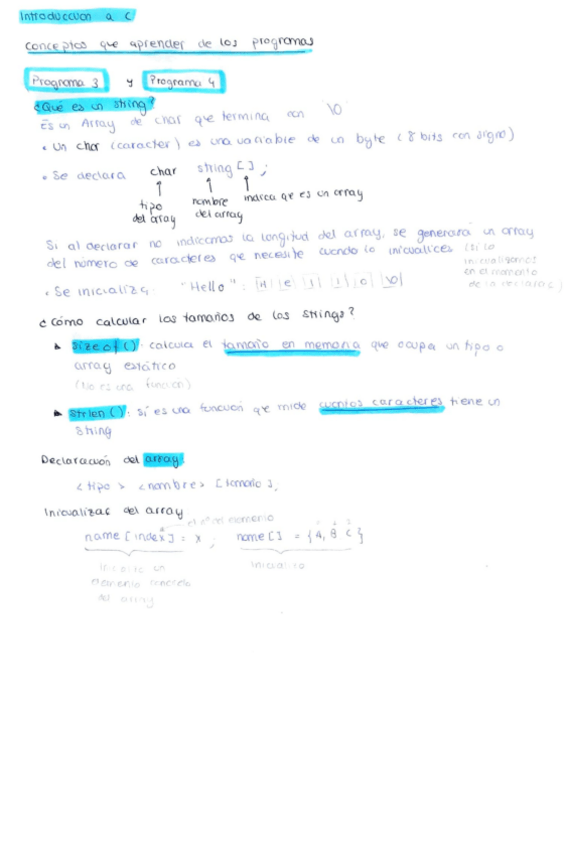 Introducción a C
conceptos que aprender de los programas
Programa 3 y Programa 4
¿Qué es un string?
Es un Array de char que termina con \0
• Un char (caracter) es una variable de un byte (8 bits con signo)
• Se declara char string [ ] ;
tipo del array
nombre del array
indica que es un array
Si al declarar no indicamos la longitud del array, se generará un array
del número de caracteres que necesite cuando lo inicualices (si lo
inicualizamos
en el momento
de la declarac)
• Se inicializa: "Hello" : |H|e|l|l|o|\0|
¿Cómo calcular los tamaños de los strings?
▲ Sizeof(): calcula el tamaño en memoria que ocupa un tipo o
array estático
(No es una función)
▲ Strlen(): sí es una función que mide cuantos caracteres tiene un
string
Declaración del array:
<tipo> <nombre> [tamaño];
Inicualizar del array
el nº en memoria
name [index] = x ; name [ ] = {A, B, C}
elemento concreto
del array
inicializo